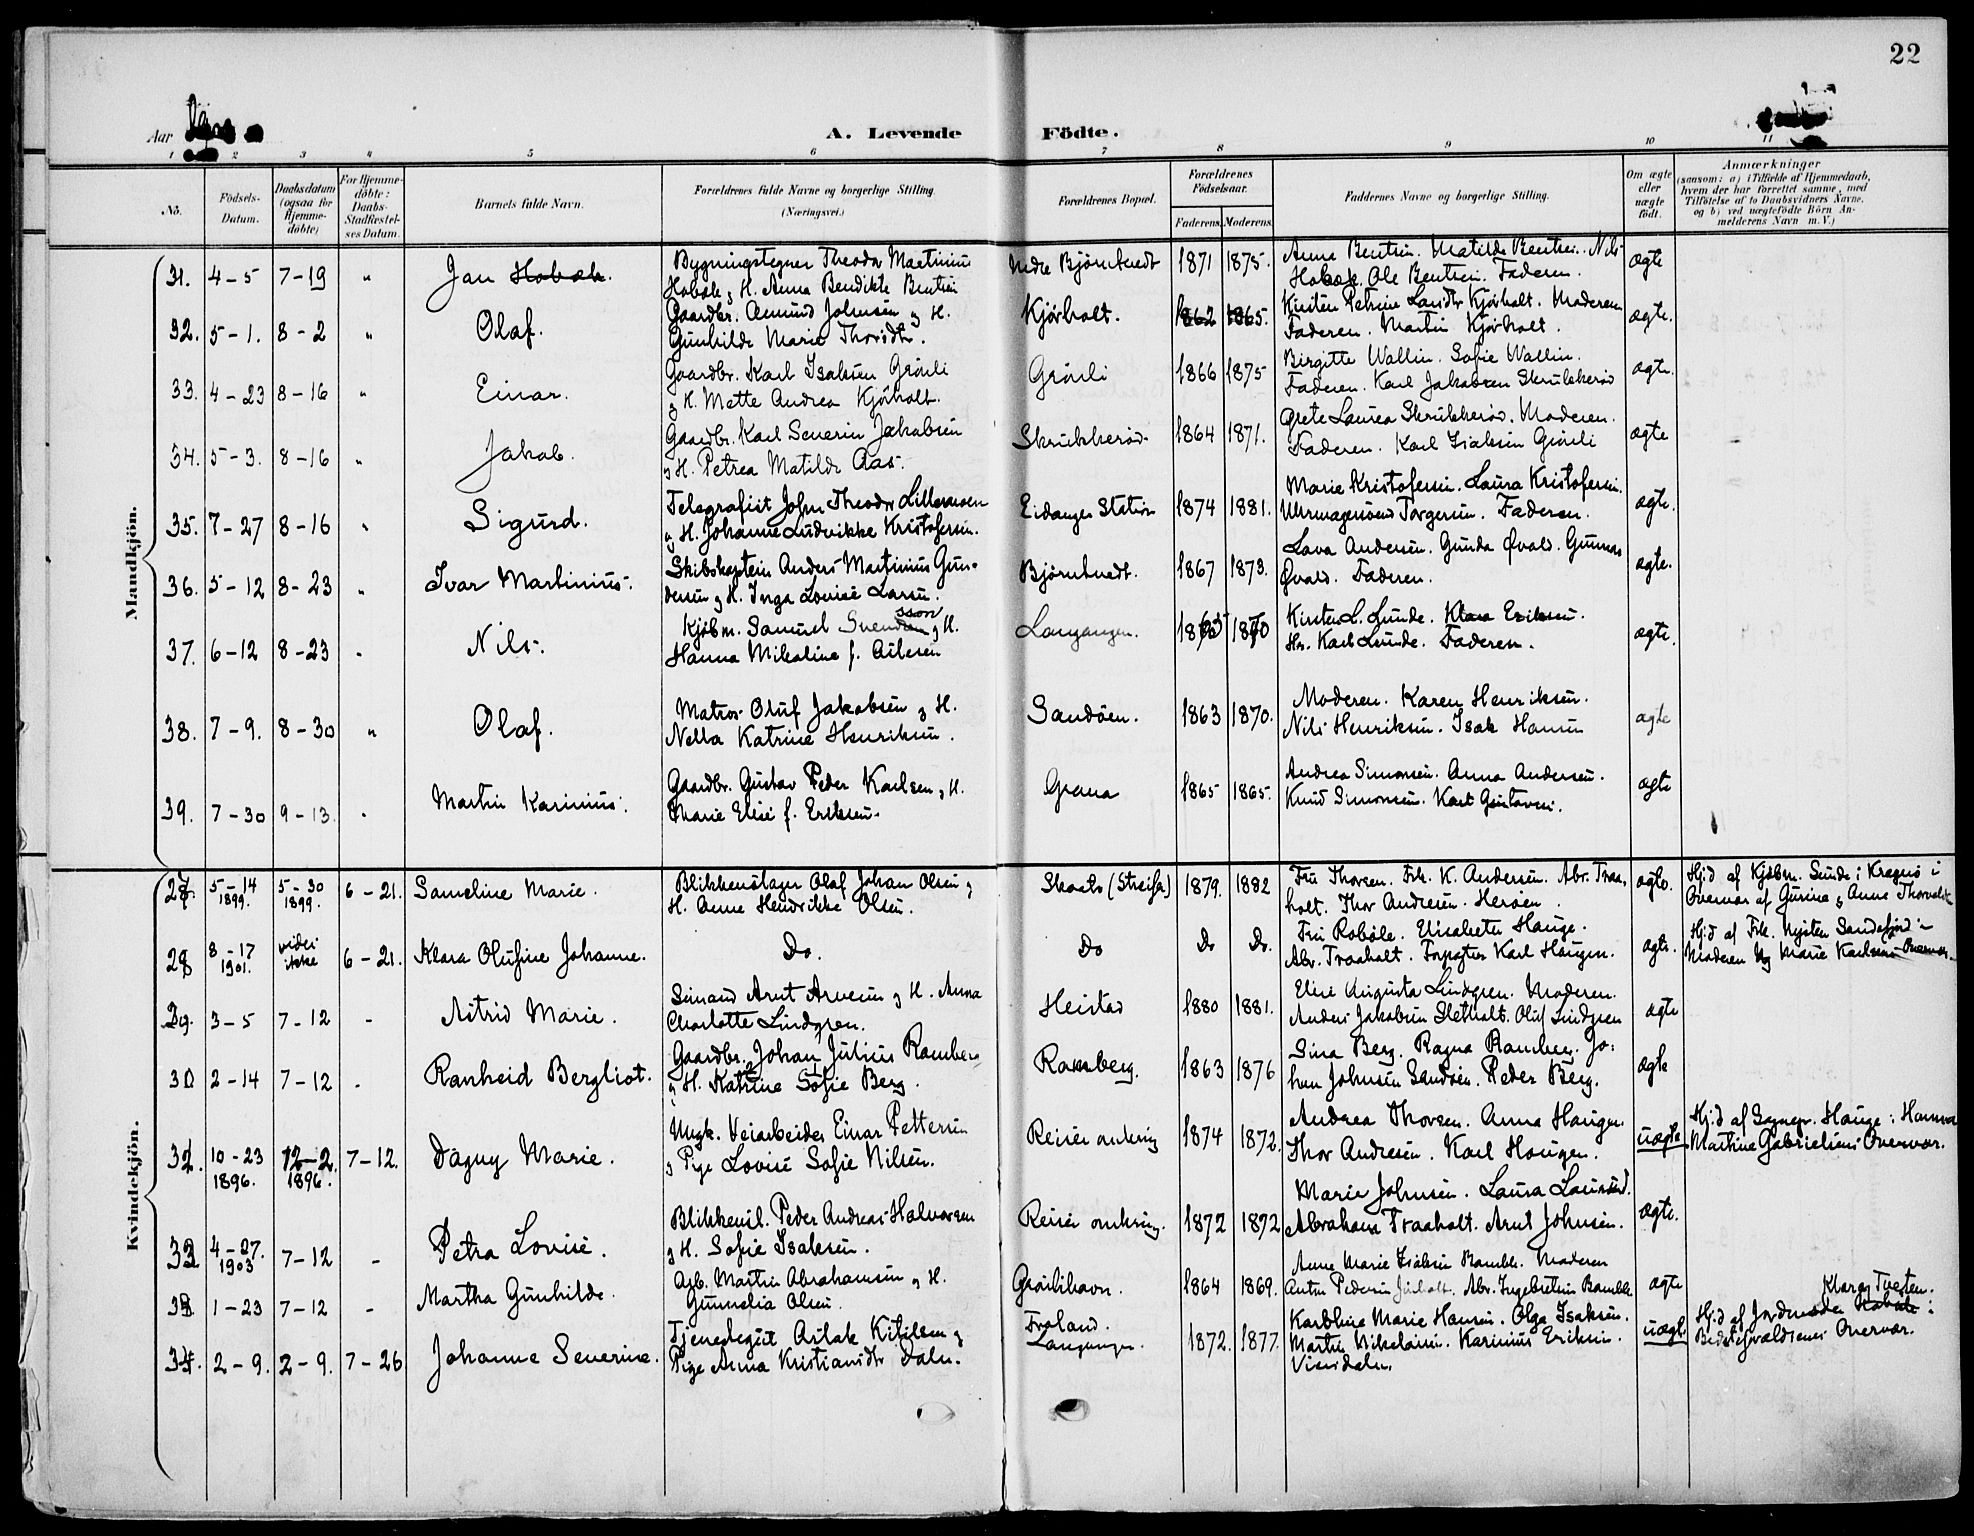 22
Aar
A. Levende Födte.
1 2 3 4 5 6 7 8 9 10 11
No. Födsels-Datum. Daabsdatum (ogsaa for Hjemme-döbte) For Hjemme-döbte: Daabs-Stadfestel-ses Datum. Barnets fulde Navn. Forældrenes fulde Navne og borgerlige Stilling. (Næringsvei.) Forældrenes Bopæl. Forældrenes Födselsaar. Faderens. Moderens. Faddernes Navne og borgerlige Stilling. Om ægte eller uægte födt. Anmærkninger (saasom: a) i Tilfælde af Hjemmedaab, hvem der har forrettet samme, med Tilföielse af to Daabsvidners Navne, og b) ved uægtefödte Börn An-melderens Navn m. V.)
Mandkjön.
31. 4-5 7-19 " Jan Hobæk. Bygningstegner Theodor Martinius Hobæk, H. Anna Bendikte Bentsen Nedre Björntvedt 1871 1875. Anna Bentsen. Matilde Bentsen. Nils Hobæk. Ole Bentsen. Faderen. ægte
32. 5-1. 8-2 " Olaf. Gaardbr. Amund Johnsen og H. Gunhilde Marie Thorsdtr. Kjörholt. 1862 1865. Kirsten Petrine Larsdtr Kjörholt. Moderen Faderen. Martin Kjörholt. ægte.
33. 4-23 8-16 " Einar. Gaardbr. Karl Isaksen Grönli og H. Mette Andrea Kjörholt. Grönli 1866 1875 Birgitte Wallin. Sofie Wallin. Faderen. Karl Jakobsen Skrukkeröd ægte.
34. 5-3. 8-16 " Jakob. Gaardbr. Karl Severin Jakobsen og H. Petrea Matilde Aas. Skrukkeröd 1864 1871. Grete Laurea Skrukkeröd. Moderen. Faderen. Karl Isaksen Grönli ægte
35. 7-27 8-16 " Sigurd. Telegrafist John Theodor Lillemoen og H. Johanne Ludvikke Kristofersen. Eidanger Station 1874 1881. Marie Kristofersen. Laura Kristofersen. Uhrmagersvend Torgersen. Faderen. ægte.
36. 5-12 8-23 " Ivar Martinius. Skibskaptein Anders Martinius Gundersen og H. Inga Lovise Larsen. Björntvedt. 1867 1873. Lava Andersen. Gunda Øvald. Gunnar Øvald. Faderen. ægte.
37. 6-12 8-23 Nils. Kjöbm. Samuel Svendsson og H. Hanna Mikaline f. Langangen. 1865 1870 Kirsten L. Lunde. Klara Eriksen. Hr. Karl Lunde. Faderen. ægte.
38. 7-9. 8-30 " Olaf. Matros Oluf Jakobsen og H. Nella Katrine Henriksen. Sandöen. 1863 1870. Moderen. Karen Henriksen. Nils Henriksen. Isak Hansen ægte
39. 7-30 9-13. Martin Karinius. Gaardbr. Gustav Peder Karlsen, H. Marie Elise f. Eriksen. Grava 1865 1865. Andrea Simonsen. Anna Andersen. Knud Simonsen. Karl Gustavsen. ægte
Kvindekjön.
27. 5-14 1899. 5-30 1899. 6-21. Sameline Marie. Blikkenslager Olaf Johan Olsen og H. Anne Hendrikke Olsen. (Streifer) 1879. 1882 Fru Thorsen. Frk. K. Andersen. Abr. Traaholt. Thor Andresen. Heröen. ægte. Hj.d af Kjöbm. Sunde i Kragerö i Overvær af Gurine & Anne Thorvaldsen
28 8-17 1901. vides ikke 6-21. Klara Olufine Johanne. Do. Do Do Do. Fru Roböle. Elisabeth Hauge. Abr. Traaholt. Forpagter Karl Haugen. ægte. Hj.d af Frk. Nysten Sandefjord i Moderen og Marie Karlsens Overvær.
29. 3-5 7-12 - Astrid Marie. Sömand Arnt Arvesen og H. Anna Charlotte Lindgren. Heistad 1880 1881. Elise Augusta Lindgren. Moderen. Anders Jakobsen Sletholt. Oluf Lindgren ægte
30 2-14 7-12 - Ranheid Bergliot. Gaardbr. Johan Julius Ramberg og H. Katrine Sofie Berg. Ramberg. 1863 1876 Sina Berg. Ragna Ramberg. Johan Johnsen Sandöen. Peder Berg. ægte
31. 10-23 1896. 12-2. 1896. 7-12. Dagny Marie. Ungk. Veiarbeider Einar Pettersen og Pige Lovise Sofie Nilsen. Reiser omkring 1874 1872. Andrea Thorsen. Anna Haugen. Thor Andresen. Karl Haugen. uægte Hj.d af Sognepr. Hauge i Hanna Martine Gabrielsens Overvær.
32 4-27. 1903 7-12 - Petra Lovise. Blikkensl. Peder Andreas Halvorsen og H. Sofie Isaksen. Reiser omkring. 1872 1872 Marie Johnsen. Laura Abraham Traaholt. Arnt Johnsen. ægte.
33 1-23 7-12 - Martha Gunhilde. Arb. Martin Abrahamsen og H. Gunnelia Olsen. Grönlihavn. 1864 1869. Anne Marie Isaksen Bamble. Moderen Anton Pedersen Abr. Ingebretsen Bamble ægte
34. 2-9. 2-9. 7-26 Johanne Severine. Tjenestegut Aslak Kittilsen og Pige Anna Kristiansdtr Dalen. Froland. Langangen. 1872. 1877. Karoline Marie Hansen. Olga Isaksen. Martin Mikelsen. Karinius Eriksen. Vissedalen. uægte. Hj.d af Jordmoder Klara Tvesten. i Bedsteforældrenes Overvær.